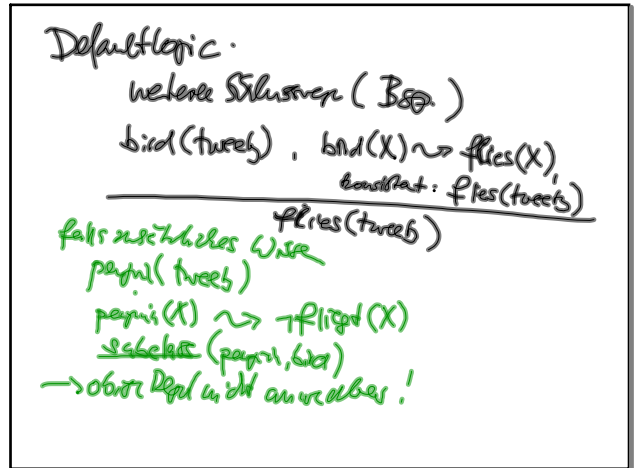 Defaultlogic.
weitere Schlussregel (Bsp.)
bird(tweety), bird(X) ⤳ flies(X),
konsistent: flies(tweety)
flies(tweety)
falls zusätzliches Wissen
penguin(tweety)
penguin(X) ⤳ ¬fliegt(X)
subclass(penguin, bird)
→ obere Regel nicht anwendbar!